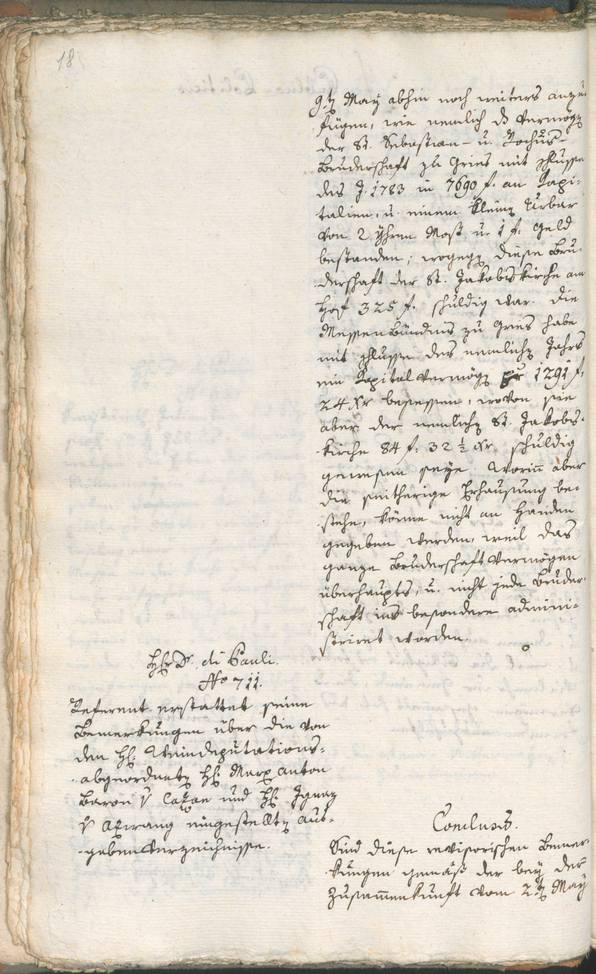 18
9t. May abhin noch weiters anzu
fügen, wie nemlich ds Vermög
der St. Sebastian- u. Rochus-
Bruderschaft zu Gries mit schlusse
des J. 1783 in 7690 f. an Kapi-
talien, u. einem kleinen Urbar
von 2 Yhren Most u. 1 f. Geld
bestanden; wogegen diese Bru-
derschaft der St. Jakobskirche am
Hof 325 f. schuldig war. Die
Messenbündnis zu Gries habe
mit schlusse des nemlichen Jahrs
ein Kapitalvermögen pr 1291 f.
24 Xr besessen, wovon sie
aber der nemlichen St. Jakobs-
kirche 84 f. 32 ½ Xr. schuldig
gewesen seye. Worin aber
die seitherige Erhausung be-
stehe, könne nicht an Handen
gegeben werden, weil das
ganze Bruderschaftvermögen
überhaupts, u. nicht jede Bruder-
schaft ins besondere admini-
strirt worden.
Hr. Dr. di Pauli.
No 711.
Referent erstattet seine
Bemerkungen über die von
den H. Weindeputations-
abgeordneten H. Marx Anton
Baron v und H. Ignaz
v Atzwang eingestellten Aus-
gabenverzeichnisse.
Conclus.
Sind diese revisorischen Bemer-
kungen gemäß der bey der
Zusammenkunft vom 2t. May